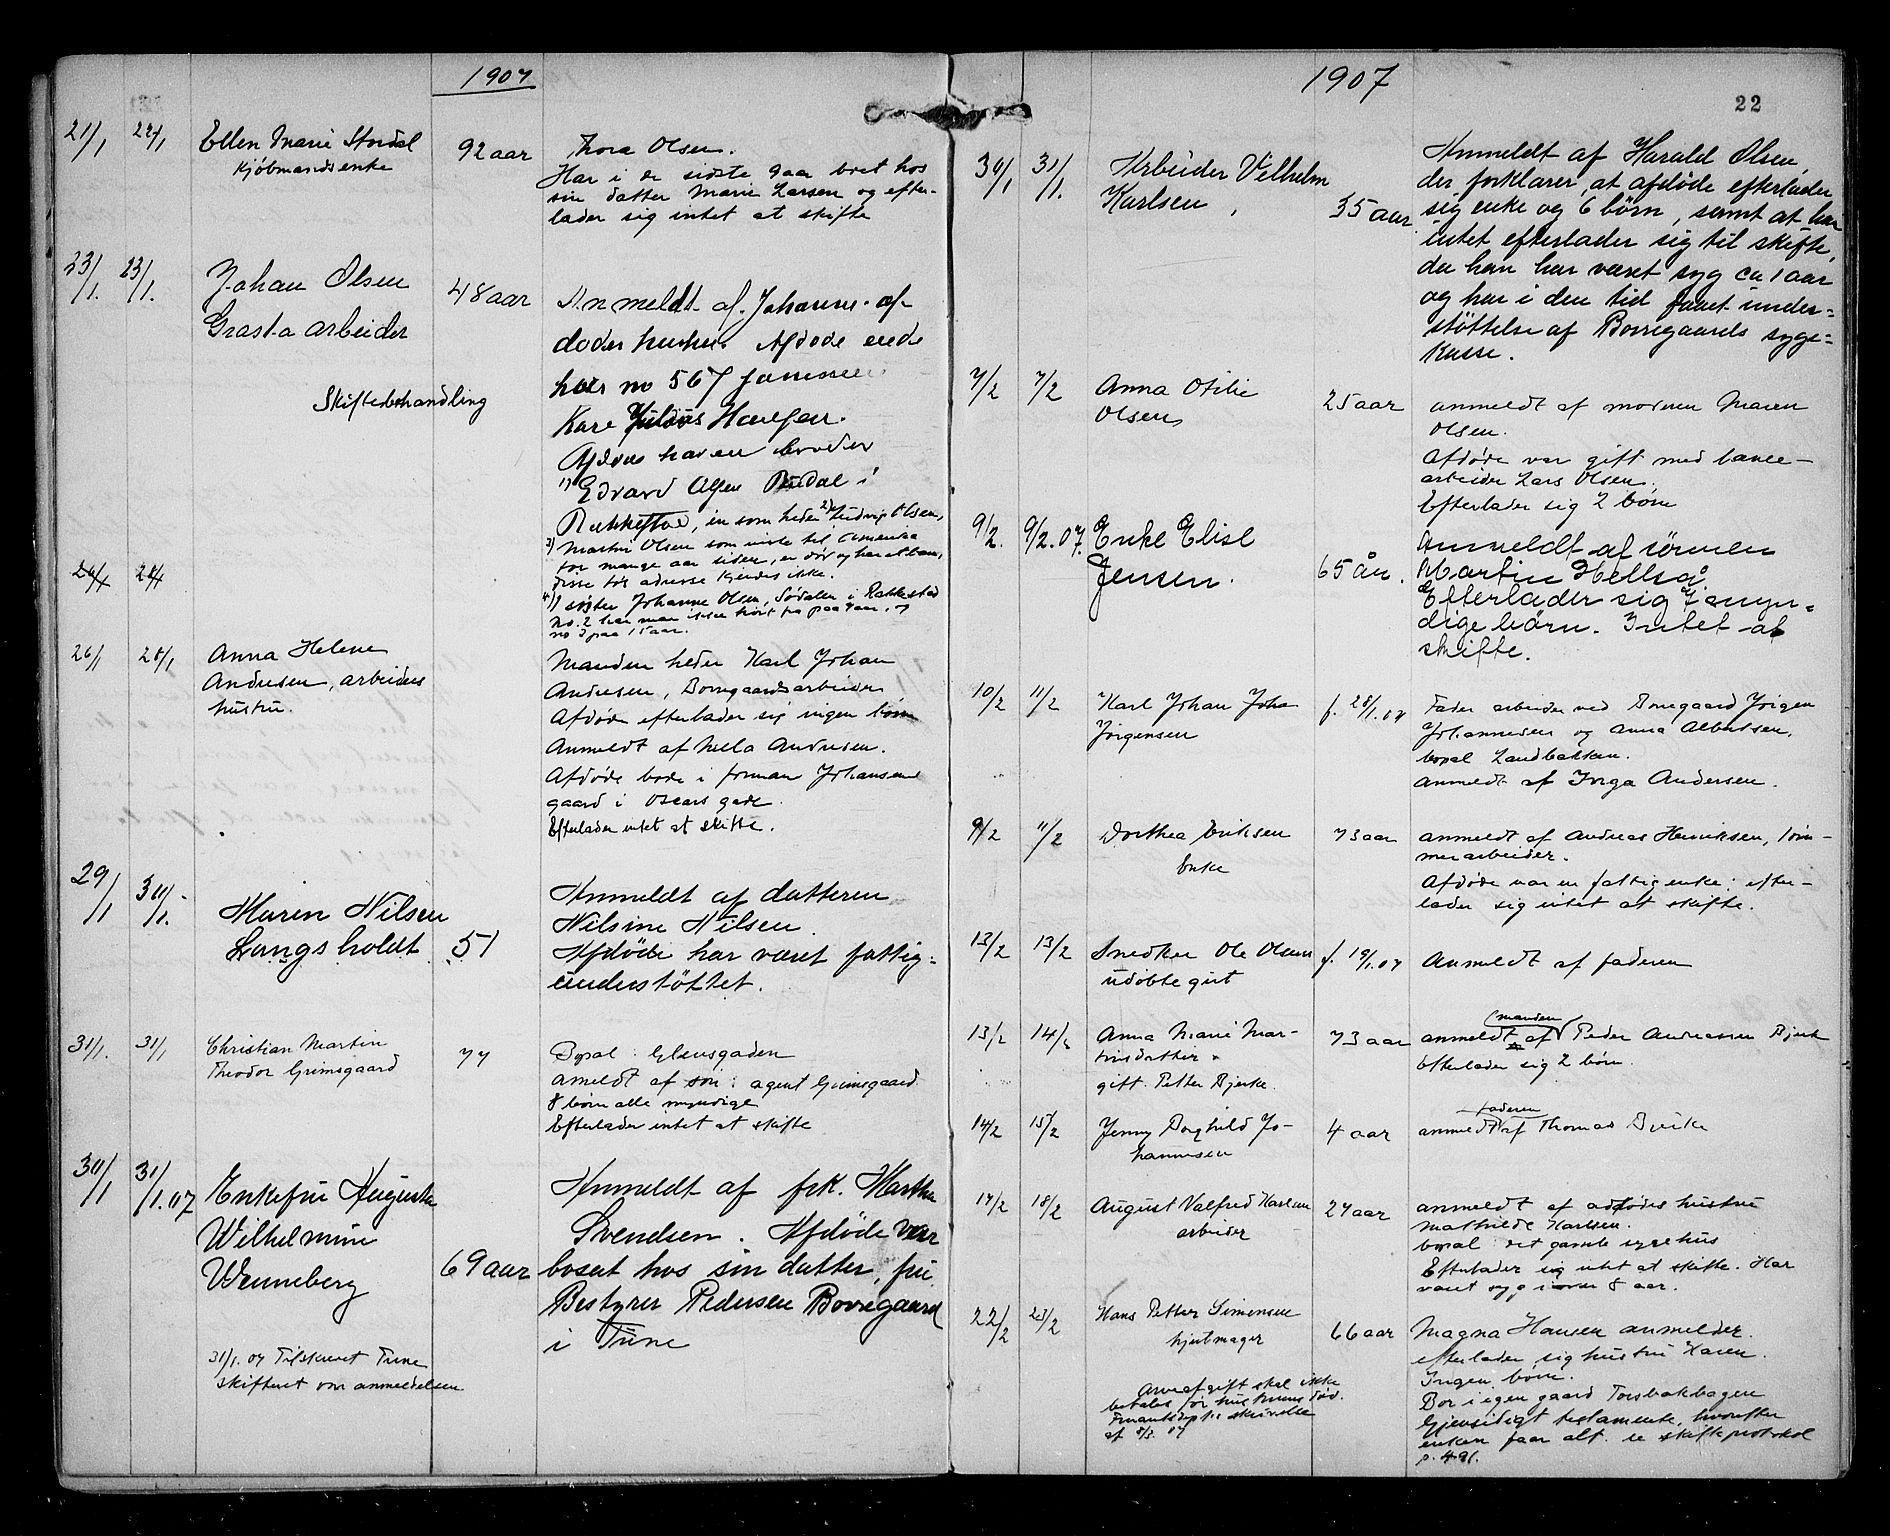 1907
21/1 22/1 Ellen Marie Stordal 92 aar Thora Olsen.
Kjøbmandsenke Har i de sidste 9 aar boet hos
sin datter Marie Larsen og efter-
lader sig intet at skifte
23/1. 23/1. Johan Olsen 48 aar Anmeldt af Johanne af-
arbeider dødes Afdøde eiede
Skiftebehandling hus no 567
Kare Julius Haugen.
Afdøde har en broder
1) Edvard Olsen i
Rakkestad, en som heder 2) Ludvig Olsen,
3) Martin Olsen som reiste til Amerika
for mange aar siden, er død og har et barn,
disse to's adresse kjendes ikke.
4) 1 søster Johanne Olsen, Sødalen i Rakkestad
No. 2 har man ikke hørt fra paa 9 aar, og
no 3 paa 15 aar.
26/1 28/1 Anna Helene Manden heder Karl Johan
Andresen, arbeiders Andresen, Borregaardsarbeider
hustru. Afdøde efterlader sig ingen børn
Anmeldt af Mela Andresen.
Afdøde bode i forman Johansens
gaard i Oscars gade.
Efterlader intet at skifte.
29/1 30/1. Maren Nilsen 51 Anmeldt af datteren
Langsholdt Nilsine Nilsen.
Afdøde har været fattig-
understöttet.
31/1. 31/1 Christian Martin 77 Bopal: Glengsgaden
Theodor Grimsgaard Ameldt af søn: agent Grimsgaard
8 børn alle myndige
Efterlader intet at skifte
30/1 31/1.07 Enkefru Augusta Anmeldt af frk. Martha
Wilhelmine Svendsen. Afdøde var
Wenneberg 69 aar bosat hos sin datter, fru
Bestyrer Pedersen Borregaard
i Tune
31/1. 07 Tilskrevet Tune
skifteret om anmeldelsen
1907
22
30/1 31/1. Arbeider Vilhelm Anmeldt af Harald Olsen,
Karlsen, 35 aar. der forklarer, at afdøde efterlader
sig enke og 6 børn, samt at han
intet efterlader sig til skifte,
da han har været syg ca 1 aar
og har i den tid faaet under=
støttelse af Borregaards syge=
kasse.
7/2 7/2 Anna Otilie 25 aar anmeldt af moderen Maren
Olsen Olsen.
Afdøde var gift med lance-
arbeider Lars Olsen.
Efterlader sig 2 børn
9/2. 9/2.07. Enke Elise 65 år. Anmeldt af sønnen
Jensen. Martin Hellså.
Efterlader sig 7 myn=
dige børn. Intet at
skifte.
10/2 11/2 Karl Johan Joha f. 28/1.07 Fader arbeider ved Borregaard Jørgen
Jörgensen Johannesen og Anna Albertsen,
bopal Sandbakken.
anmeldt af Inga Andersen.
9/2 11/2 Dorthea Eriksen 73 aar anmeldt af Andreas Henriksen, töm-
Enke merarbeider.
Afdøde var en fattig enke; efter-
lader sig intet at skifte.
13/2 13/2 Snedker Ole Olsens f. 19/1.07 Anmeldt af faderen
udöbte gut
13/2 14/2 Anna Marie Mar- 73 aar anmeldt af manden Peder Andreassen Bjerke
tinsdatter. Efterlader sig 2 børn.
gift. Petter Bjerke.
14/2 15/2 Jenny Borghild Jo- 4 aar anmeldt af faderen Thomas
hannesen
17/2 18/2 August Valfred Karlsen 27 aar anmeldt af adfødes hustru
arbeider Mathilde Karlsen.
bopal: det gamle sygehus
Efterlader sig intet at skifte. Har
været syg i over 8 aar.
22/2 23/2 Hans Petter Simensen 66 aar Magna Hansen anmelder.
hjulmager efterlader sig hustru Karen.
Ingen børn.
Arveafgift skal ikke Bor i egen gaard Torsbakbagen
betales før hustruens död. Gjensidigt testamente, hvorefter
Finantsdepts skrivelse enken faar alt. se skifteprotokol
af 8/3. 07 p. 491.